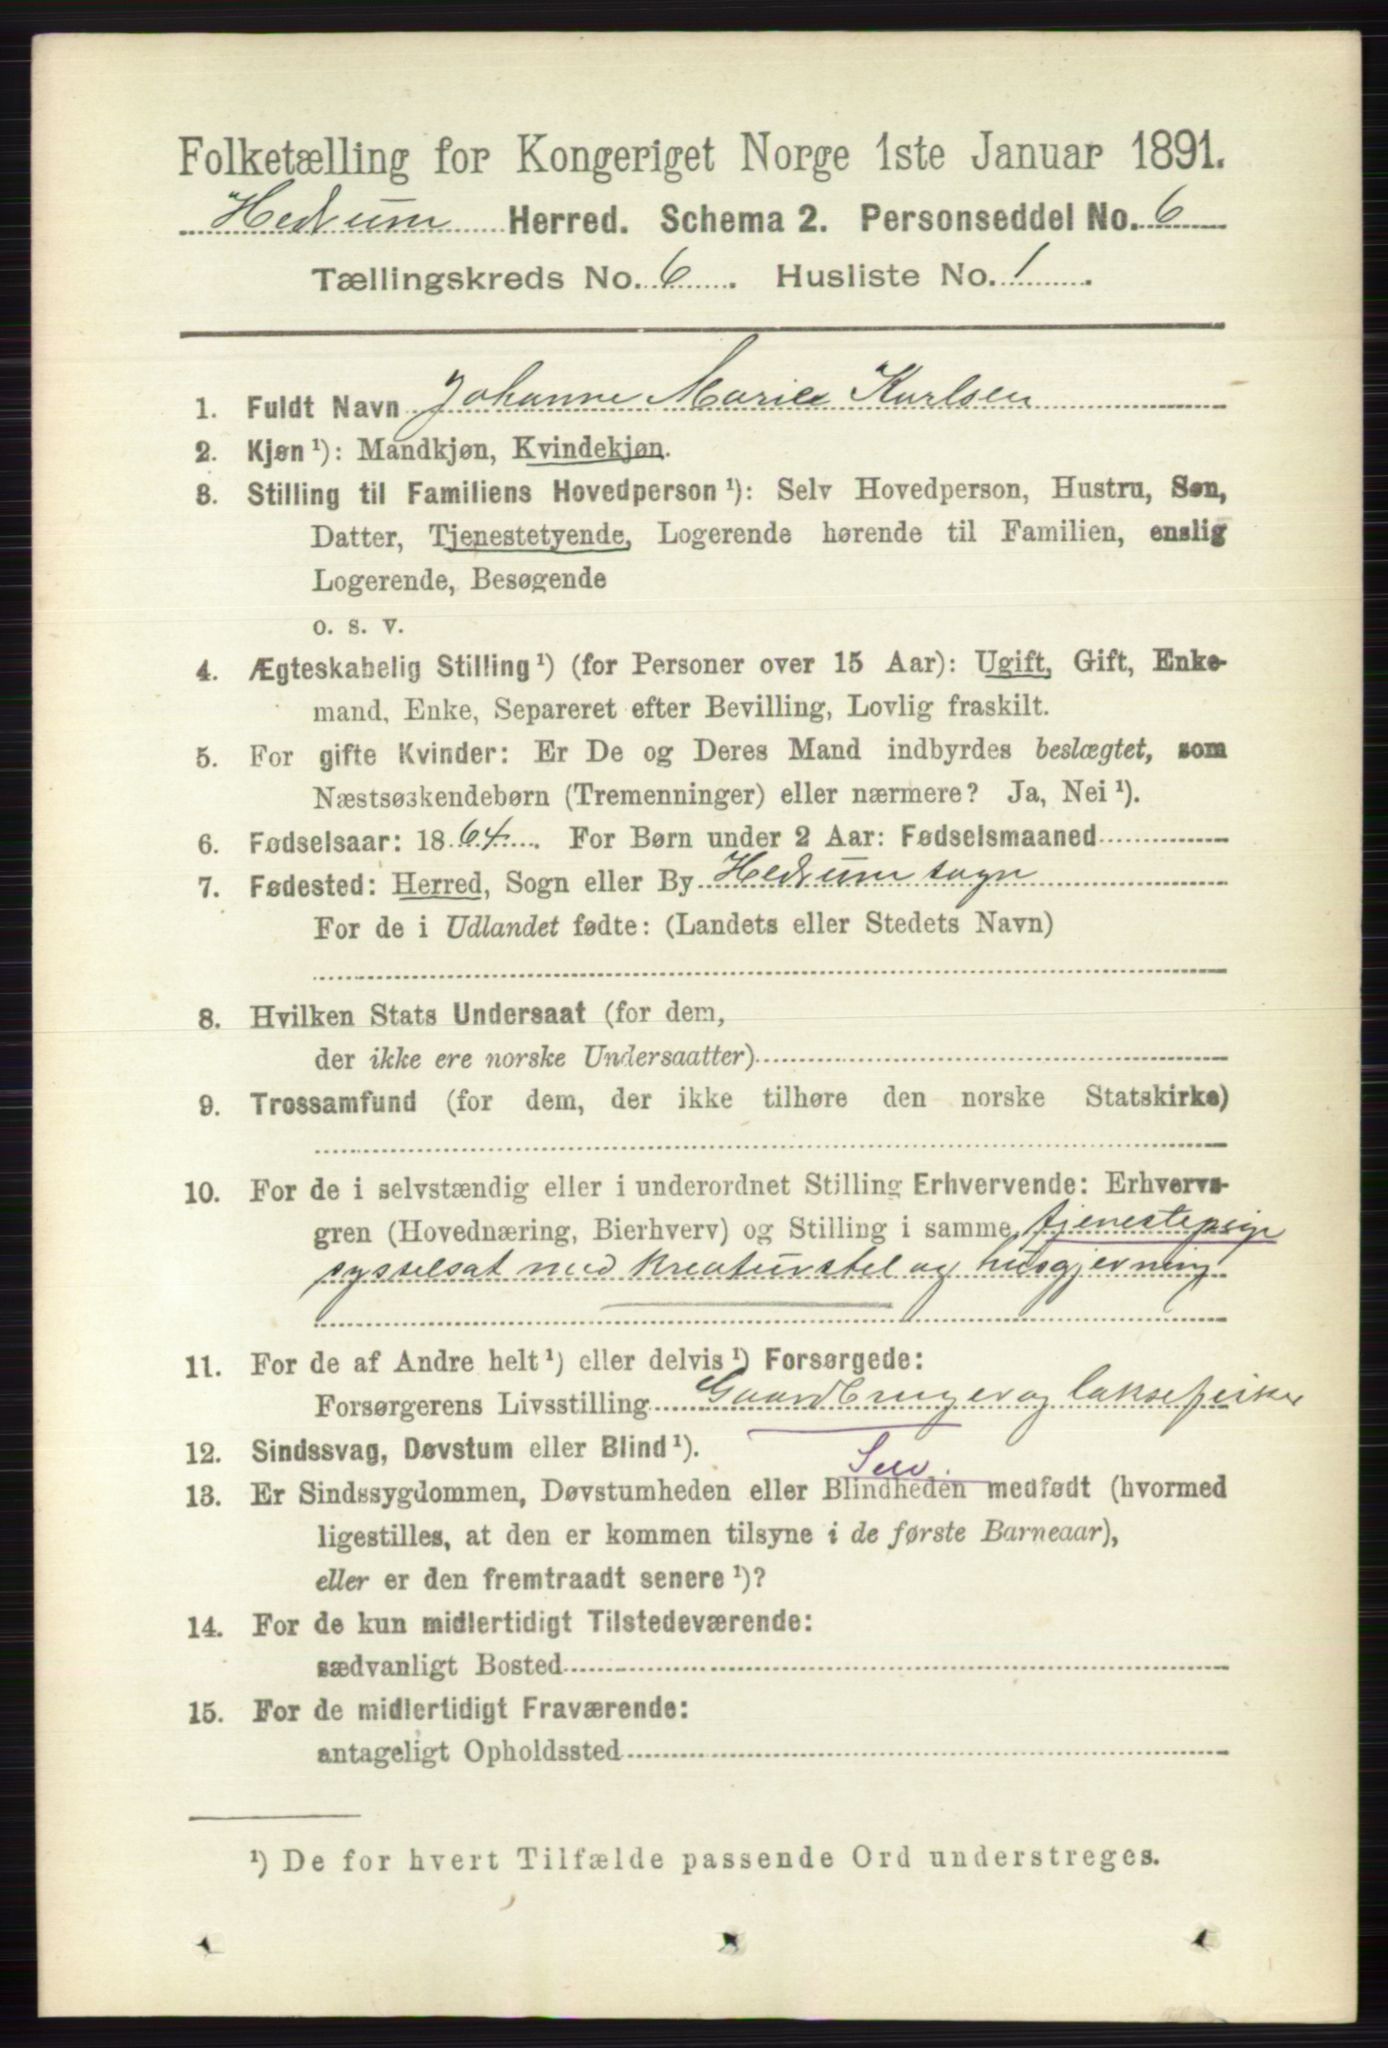 Folketælling for Kongeriget Norge 1ste Januar 1891.
Hedrum Herred. Schema 2. Personseddel No. 6
Tællingskreds No. 6. Husliste No. 1.
1. Fuldt Navn Johanne Marie Karlsen
2. Kjøn ¹): Mandkjøn, Kvindekjøn.
3. Stilling til Familiens Hovedperson ¹): Selv Hovedperson, Hustru, Søn,
Datter, Tjenestetyende, Logerende hørende til Familien, enslig
Logerende, Besøgende
o. s. v.
4. Ægteskabelig Stilling ¹) (for Personer over 15 Aar): Ugift, Gift, Enke-
mand, Enke, Separeret efter Bevilling, Lovlig fraskilt.
5. For gifte Kvinder: Er De og Deres Mand indbyrdes beslægtet, som
Næstsøskendebørn (Tremenninger) eller nærmere? Ja, Nei ¹).
6. Fødselsaar: 1864. For Børn under 2 Aar: Fødselsmaaned
7. Fødested: Herred, Sogn eller By Hedrum sogn
For de i Udlandet fødte: (Landets eller Stedets Navn)
8. Hvilken Stats Undersaat (for dem,
der ikke ere norske Undersaatter)
9. Trossamfund (for dem, der ikke tilhøre den norske Statskirke)
10. For de i selvstændig eller i underordnet Stilling Erhvervende: Erhvervs-
gren (Hovednæring, Bierhverv) og Stilling i samme tjenestepige
sysselsat med kreaturstel og husgjerning
11. For de af Andre helt ¹) eller delvis ¹) Forsørgede:
Forsørgerens Livsstilling Gaardbruger og laksefisker
12. Sindssvag, Døvstum eller Blind ¹).
Selv.
13. Er Sindssygdommen, Døvstumheden eller Blindheden medfødt (hvormed
ligestilles, at den er kommen tilsyne i de første Barneaar),
eller er den fremtraadt senere ¹)?
14. For de kun midlertidigt Tilstedeværende:
sædvanligt Bosted
15. For de midlertidigt Fraværende:
antageligt Opholdssted
¹) De for hvert Tilfælde passende Ord understreges.